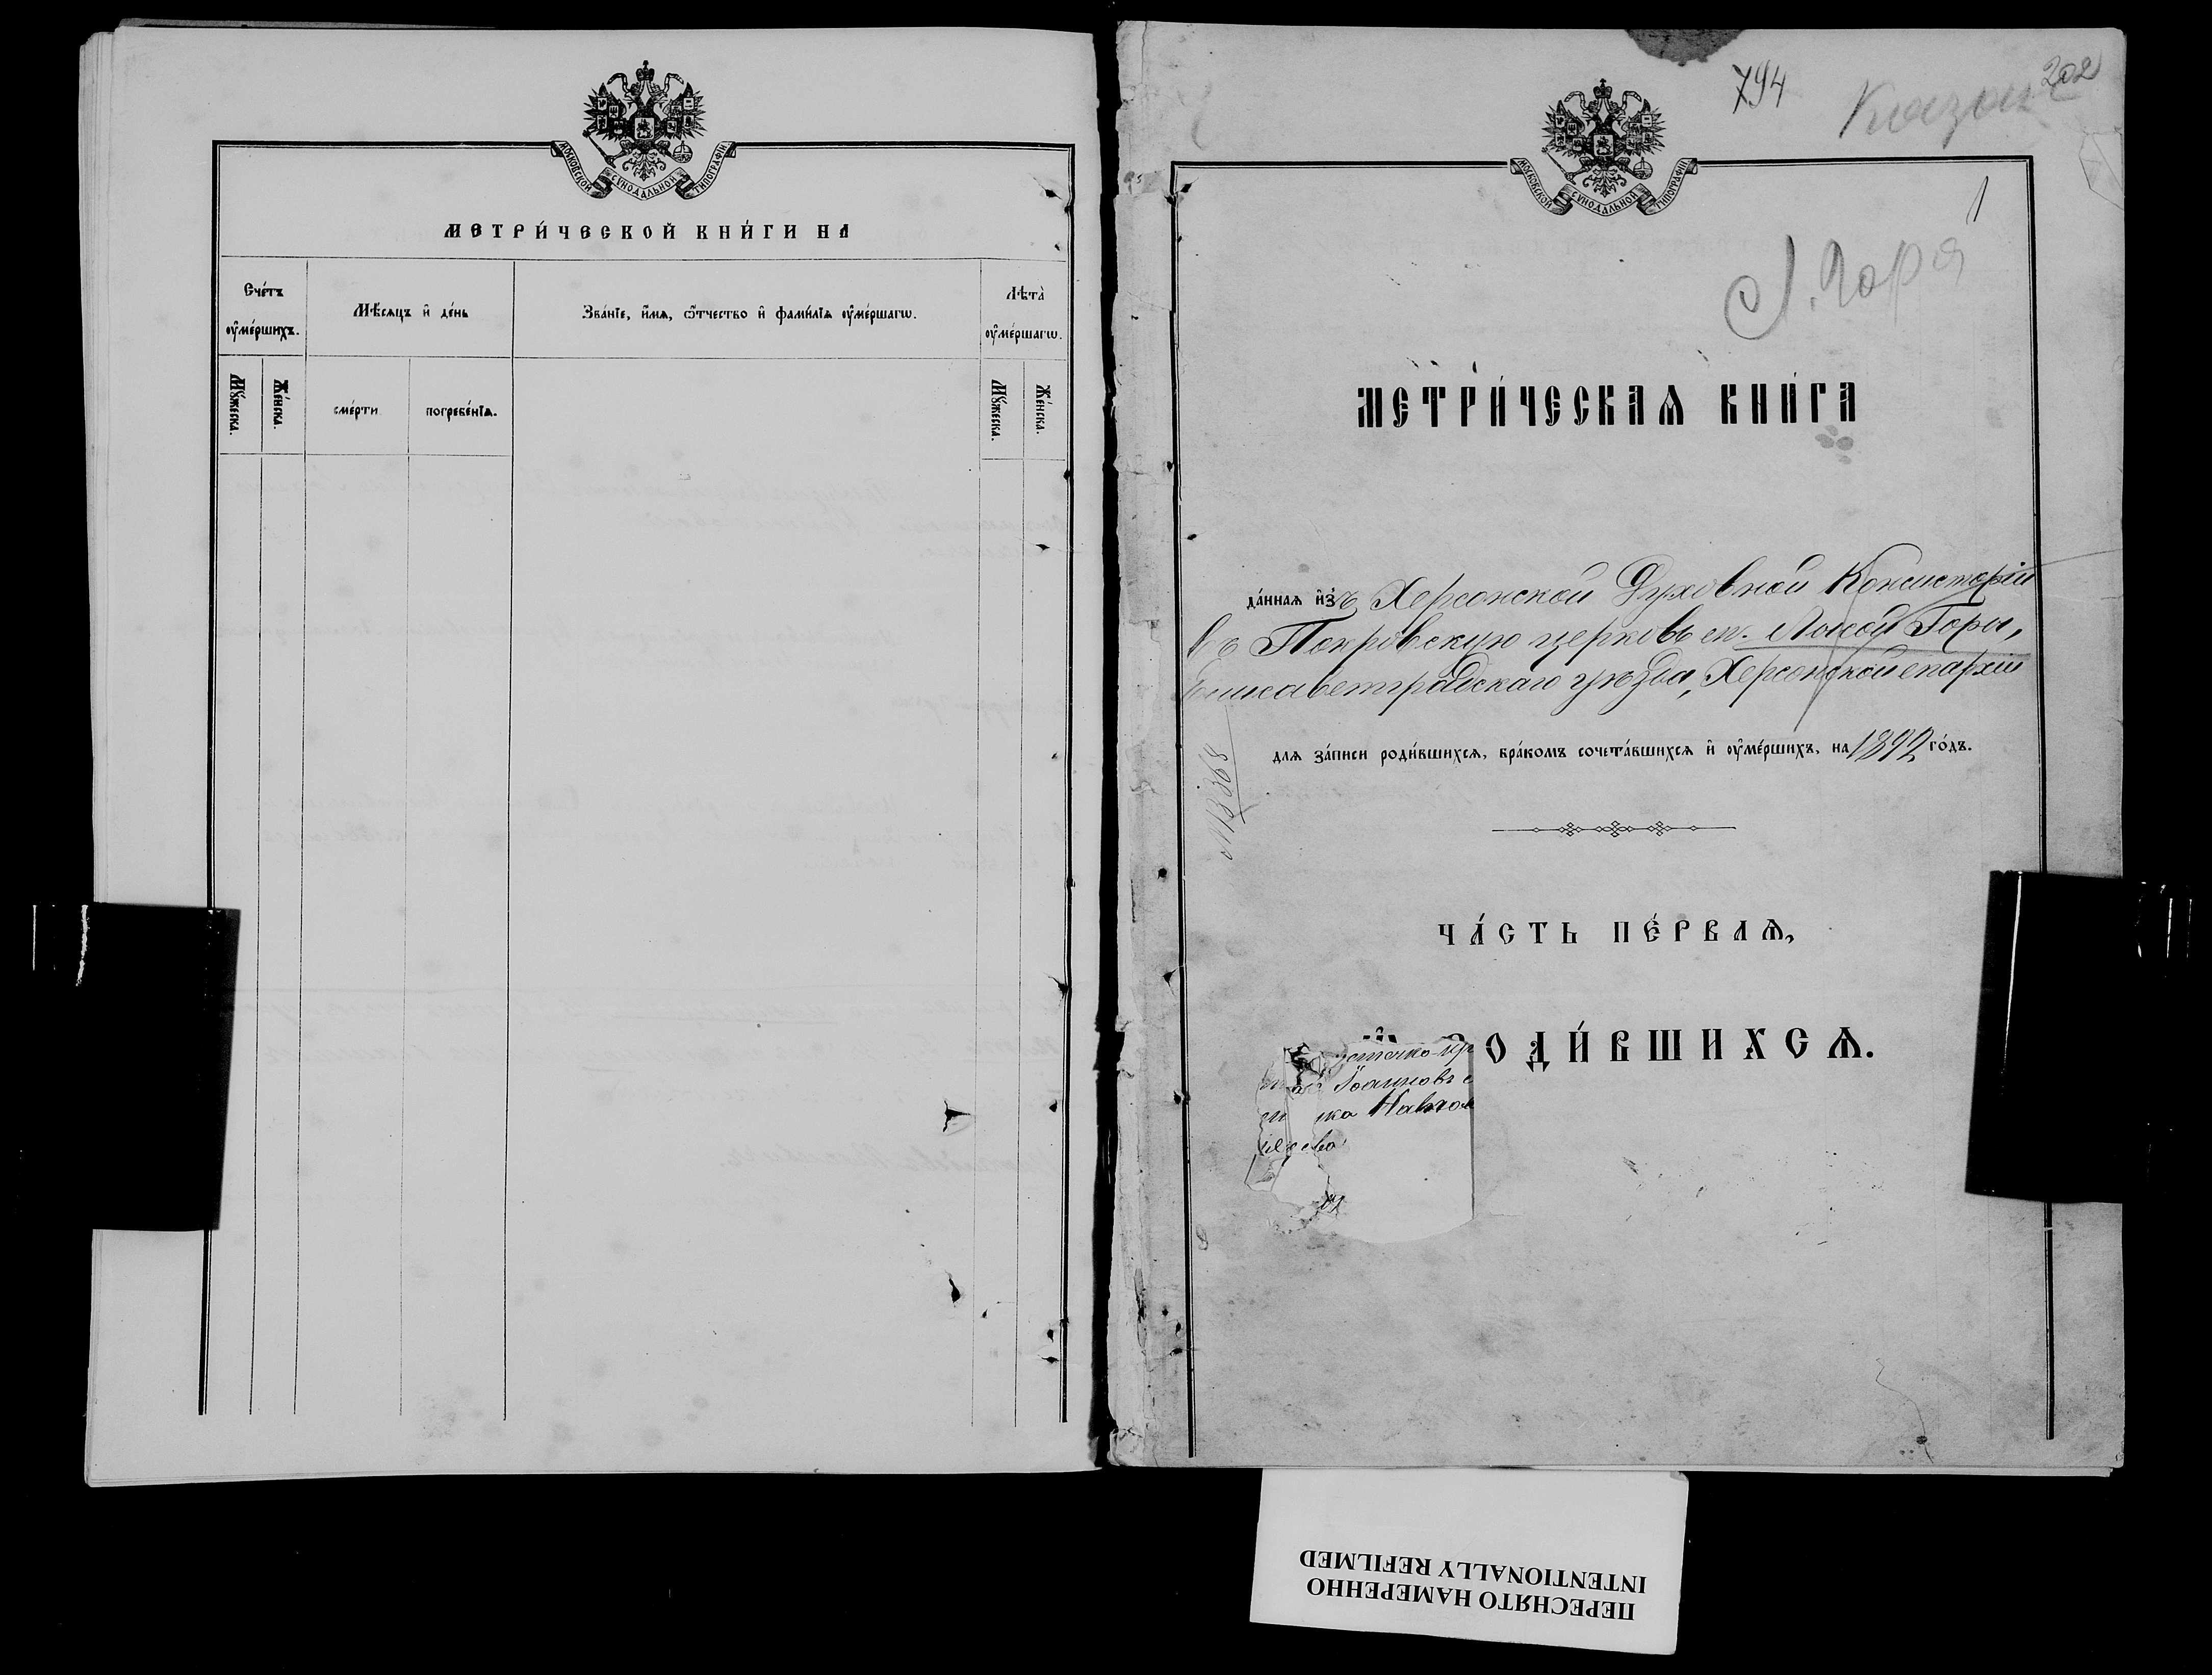 МОСКОВСКОЙ СѴНОДАЛЬНОЙ ТИПОГРАФІИ
МЕТРИ́ЧЕСКОЙ КНИ́ГИ НА
Сче́тъ
оу҆ме́ршихъ.
Мѣ́сяцъ и҆ де́нь
Зва́нїе, и҆́мѧ, ѻ҆́тчество и҆ фами́лїѧ оу҆ме́ршагѡ.
Лѣ́та
оу҆ме́ршагѡ.
Мꙋ́жеска.
Же́нска.
сме́рти
погребе́нїѧ.
Мꙋ́жеска.
Же́нска.
794
202
Казан
МОСКОВСКОЙ СѴНОДАЛЬНОЙ ТИПОГРАФІИ
1
Л. Гора
МЕТРИ́ЧЕСКАѦ КНИ́ГА
да́ннаѧ и҆зъ Херсонской Духовной Консисторіи
въ Покровскую церковь сл. Лысой Горы,
Елисаветградскаго уѣзда, Херсонской епархіи
длѧ за́писи роди́вшихсѧ, бра́комъ сочета́вшихсѧ и҆ оу҆ме́ршихъ, на 1892 го́дъ.
№ 13368
ЧА́СТЬ ПЕ́РВАѦ,
РОДИ́ВШИХСѦ.
Іоанновъ
ПЕРЕСНЯТО НАМЕРЕННО
INTENTIONALLY REFILMED